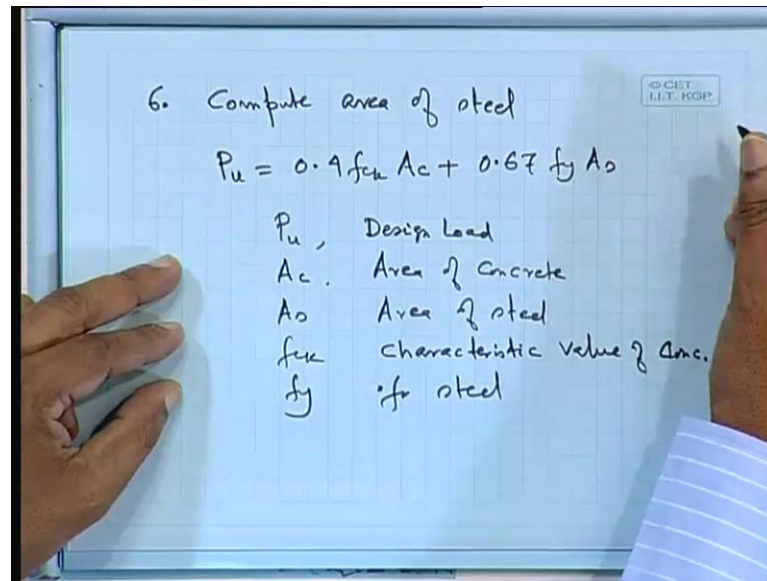 6. Compute area of steel
© CET
I.I.T. KGP
Pu = 0.4 fck Ac + 0.67 fy As
Pu, Design Load
Ac. Area of Concrete
As Area of steel
fck Characteristic value of Conc.
fy for steel